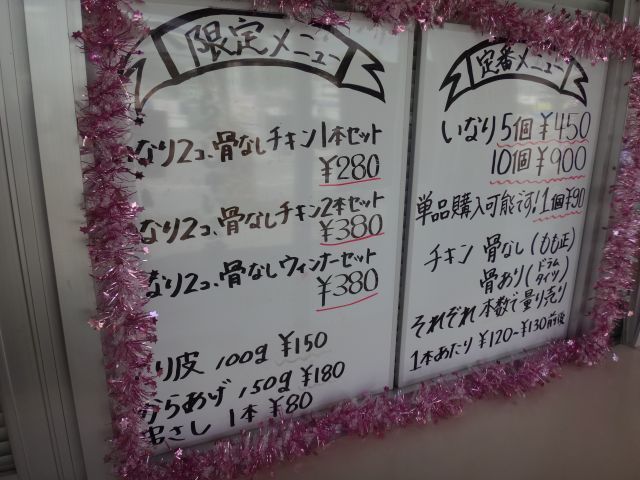 限定メニュー
なり2コ、骨なしチキン1本セット
¥280
なり2コ、骨なしチキン2本セット
¥380
なり2コ、骨なしウィンナーセット
¥380
り皮 100g ¥150
からあげ 150g ¥180
串さし 1本 ¥80
定番メニュー
いなり 5個 ¥450
10個 ¥900
単品購入可能です!1個¥90
チキン 骨なし(もも正)
骨あり(ドラム
タイツ)
それぞれ 本数で量り売り
1本あたり ¥120~¥130前後